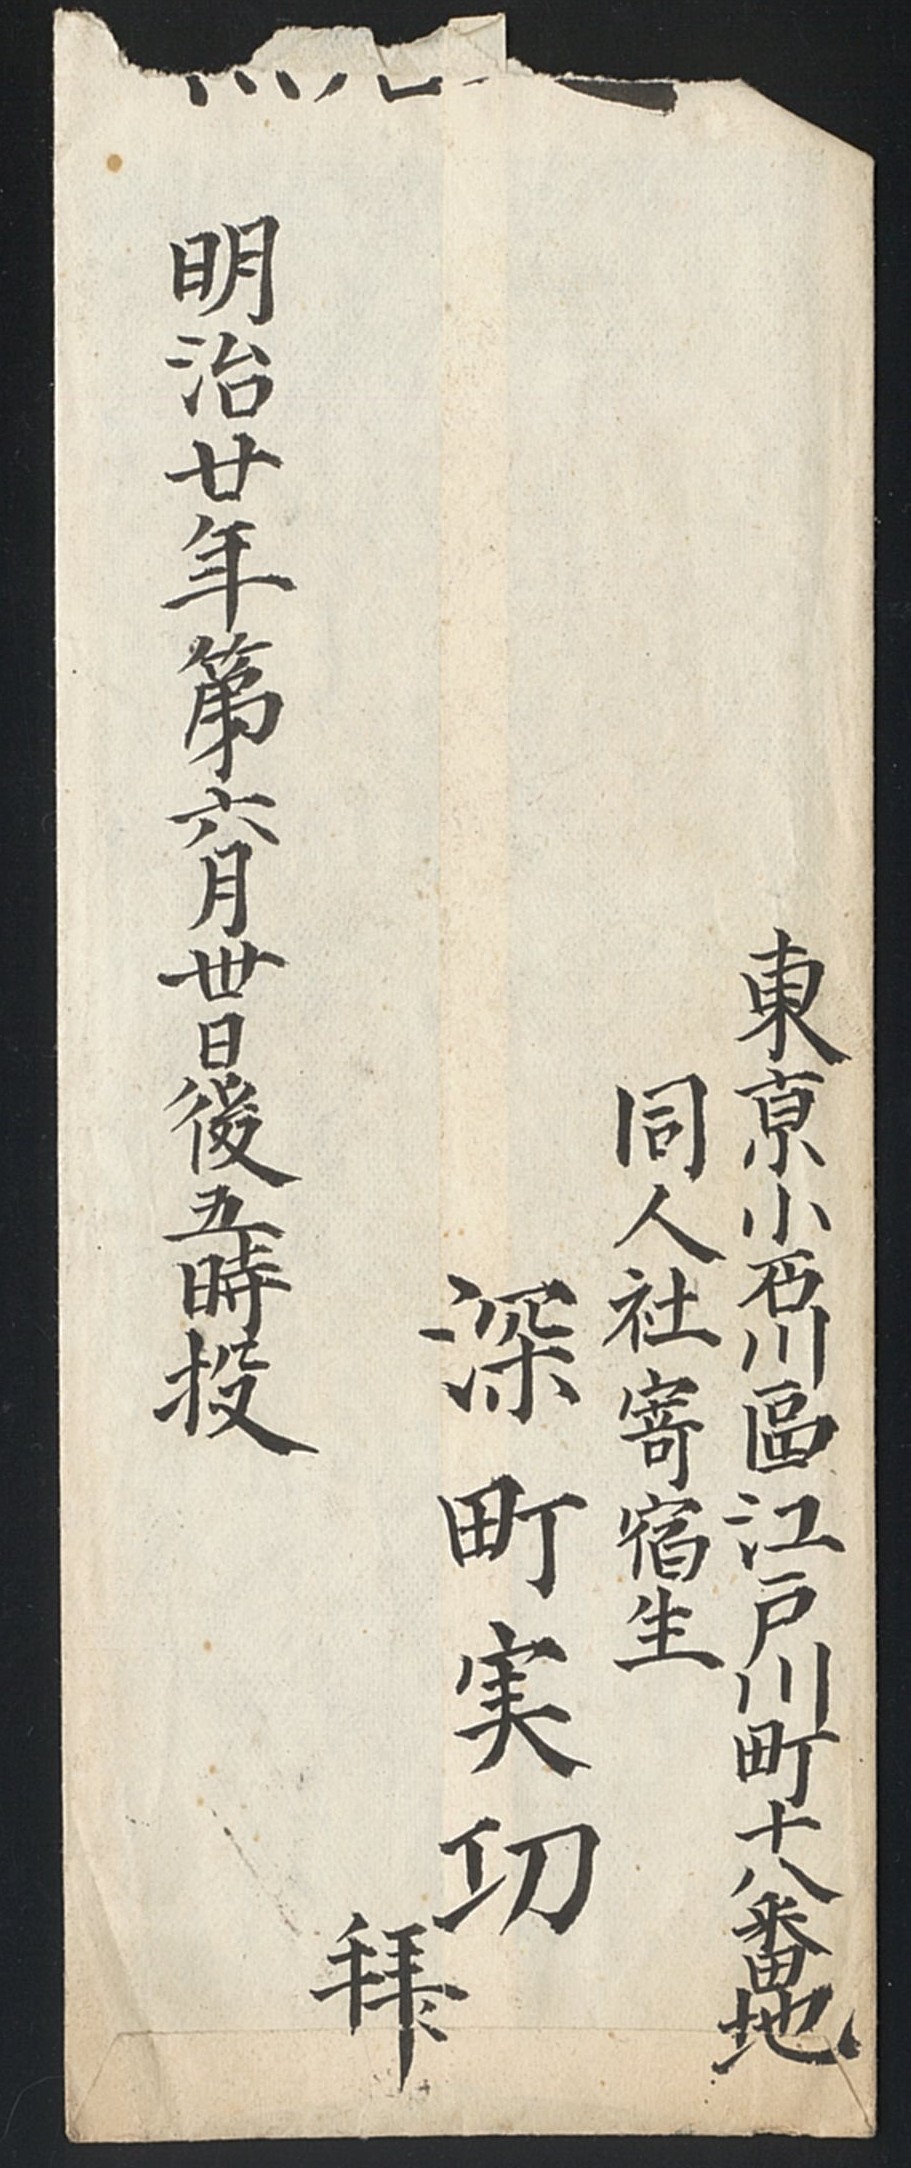 東京小石川區江戸川町十八番地
同人社寄宿生
深町実功
拜
明治廿年第六月丗日後五時投